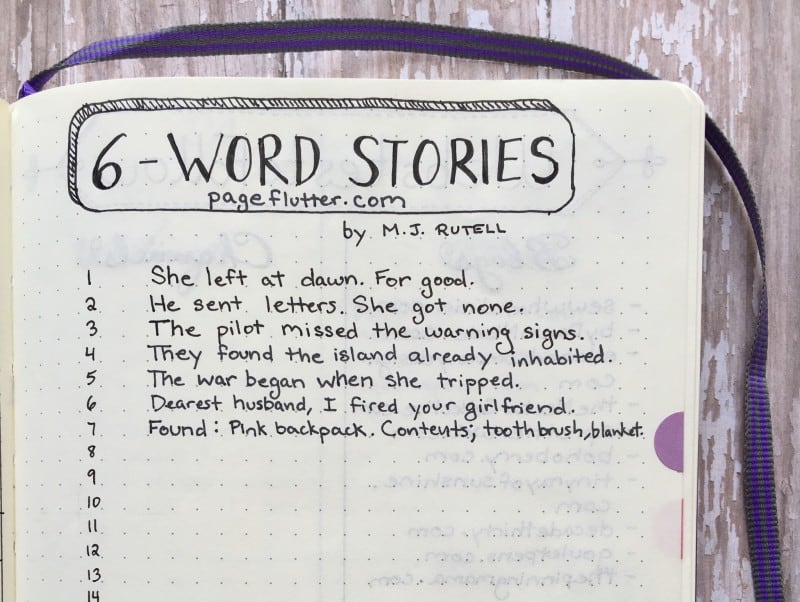 6-WORD STORIES
pageflutter.com
by M.J. RUTELL
1 She left at dawn. For good.
2 He sent letters. She got none.
3 The pilot missed the warning signs.
4 They found the island already inhabited.
5 The war began when she tripped.
6 Dearest husband, I fired your girlfriend.
7 Found: Pink backpack. Contents; toothbrush, blanket.
8
9
10
11
12
13
14